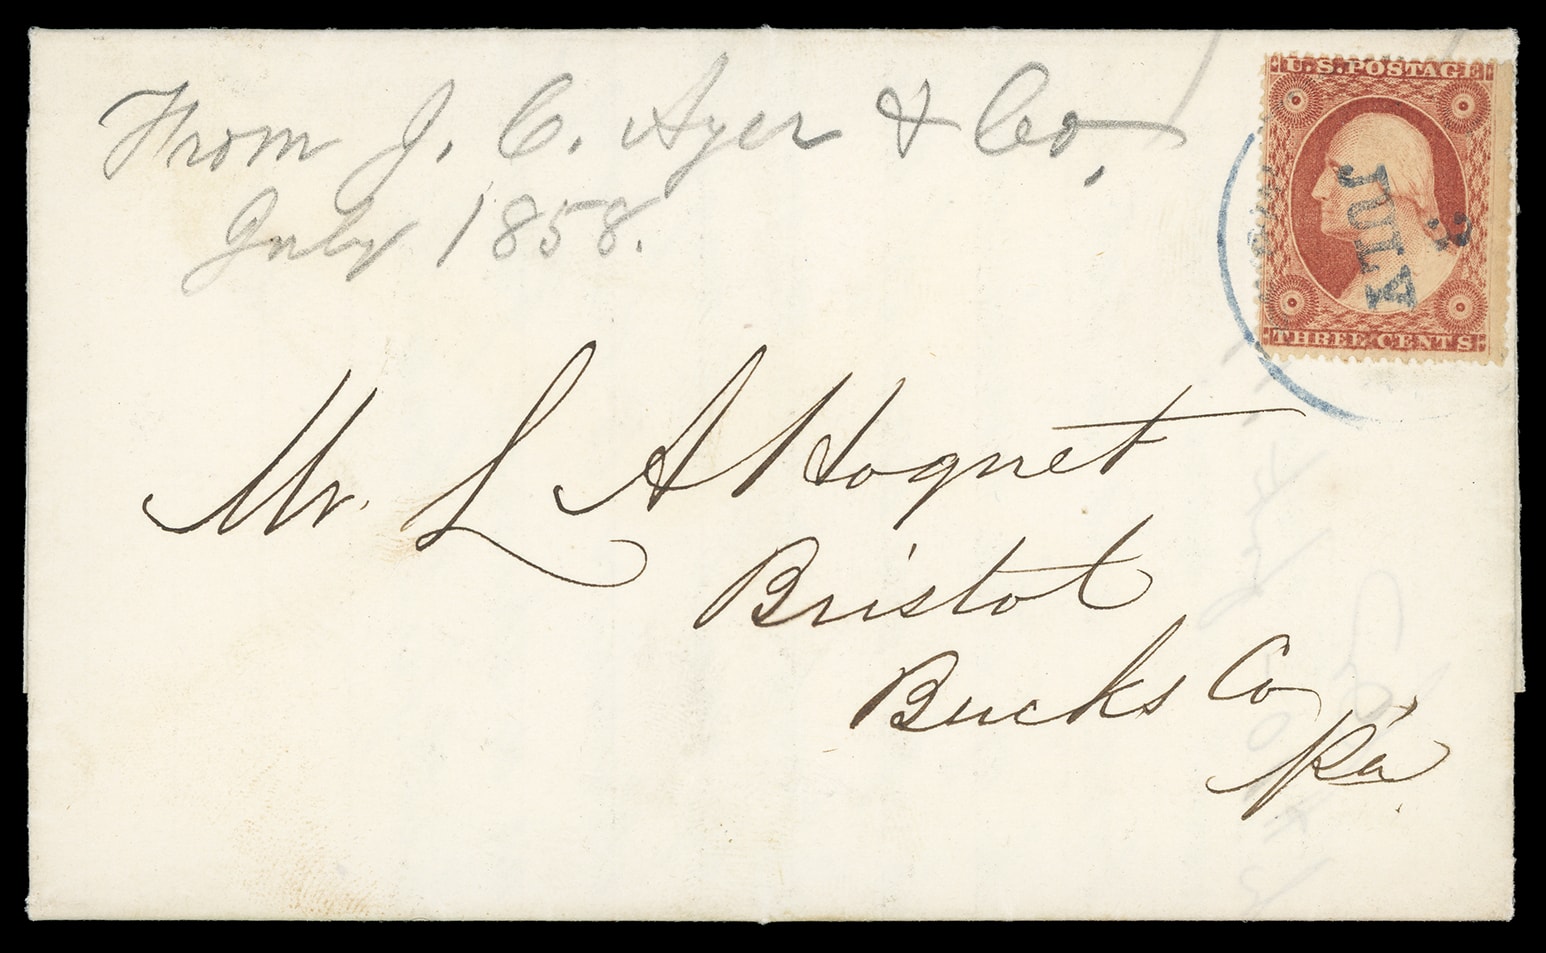 From J. C. Ayer & Co.
July 1858.
U.S. POSTAGE
JULY
THREE CENTS
Mr. L A Hoguet
Bristol
Bucks Co
Pa